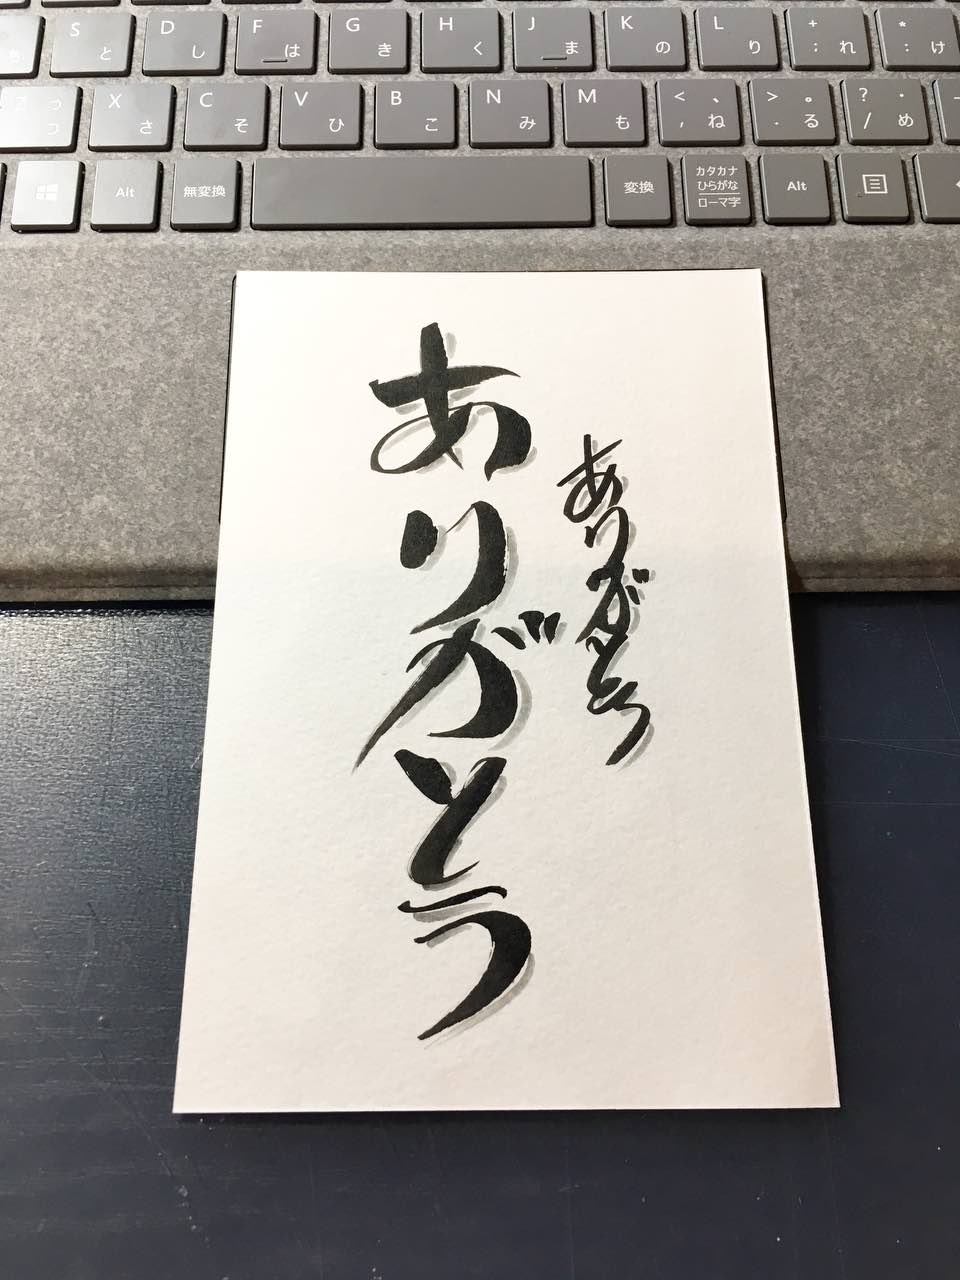 S と D し F は G き H く J ま K の L り + ; れ * : け
つ っ X さ C そ V ひ B こ N み M も < 、 , ね > 。 . る ? ・ / め
Alt 無変換 変換 カタカナ ひらがな ローマ字 Alt
ありがとう
ありがとう